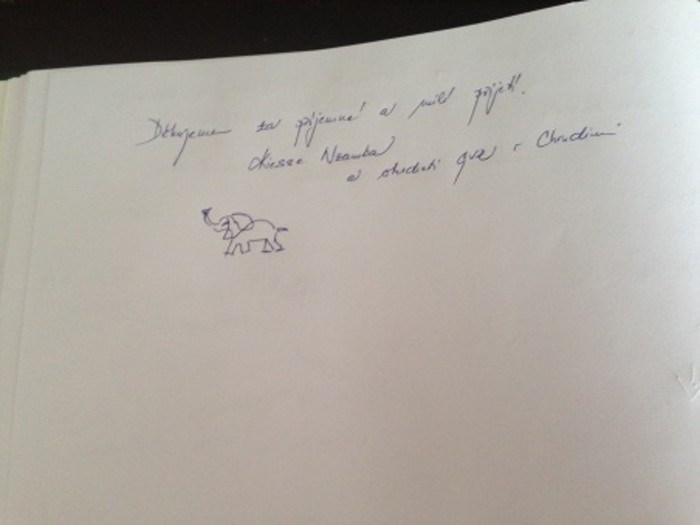 Děkujeme za příjemné a milé přijetí.
Kiesse Nsamba
a studenti gvz v Chrudimi